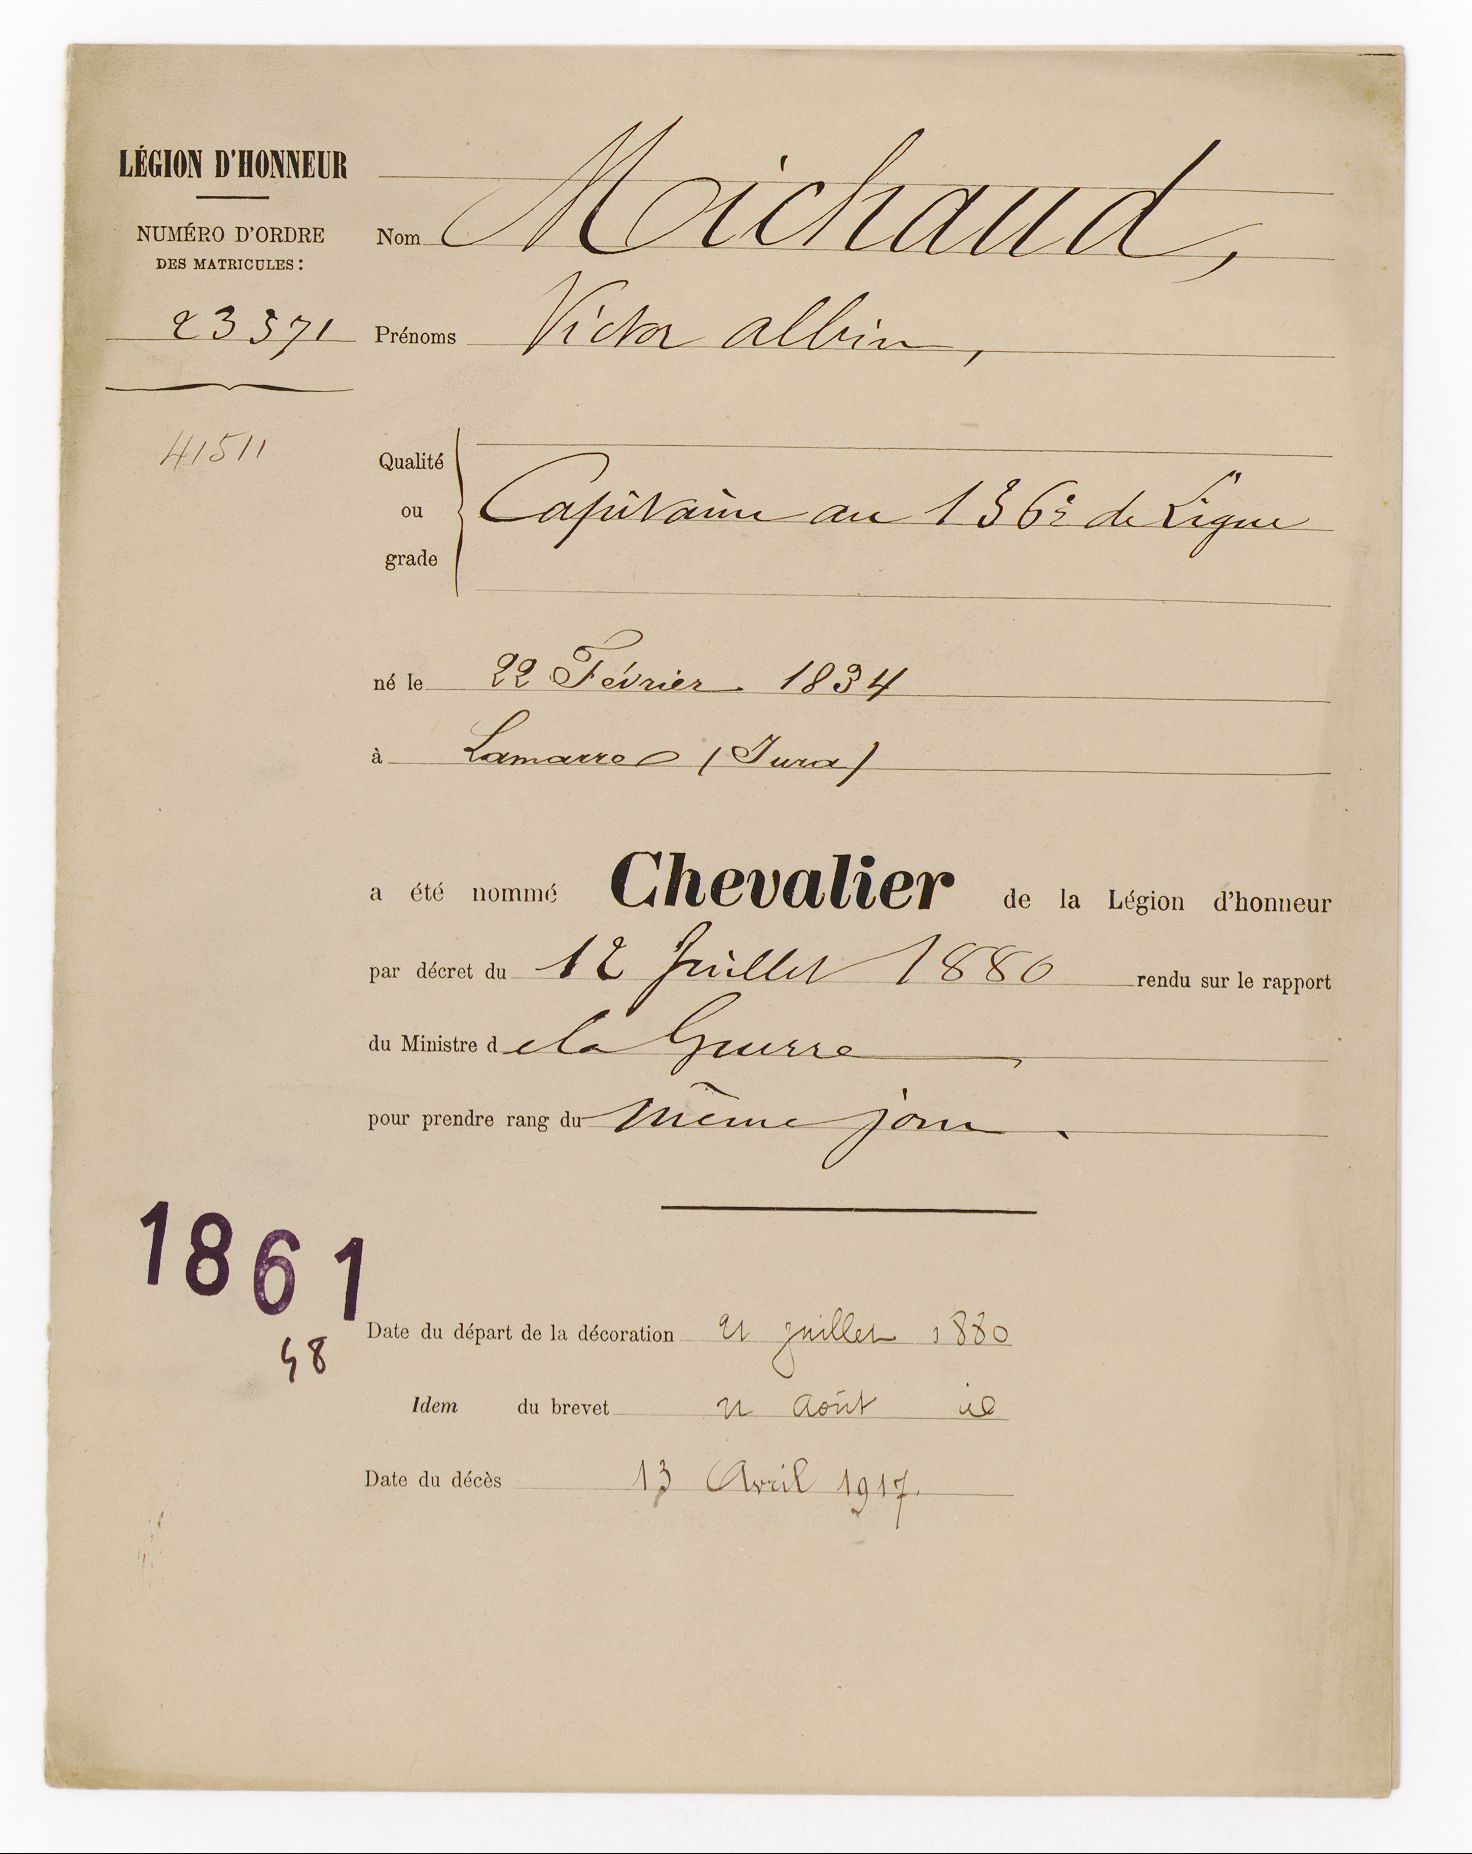 LÉGION D'HONNEUR
NUMÉRO D'ORDRE
DES MATRICULES:
23371
41511
Nom Michaud,
Prénoms Victor Albin,
Qualité
ou
grade
Capitaine au 136e de Ligne
né le 22 Février 1834
à Lamarre (Jura)
a été nommé Chevalier de la Légion d'honneur
par décret du 12 Juillet 1880 rendu sur le rapport
du Ministre de la Guerre
pour prendre rang du même jour.
1861
48
Date du départ de la décoration 21 juillet 1880
Idem du brevet 21 Août id
Date du décès 13 Avril 1917.